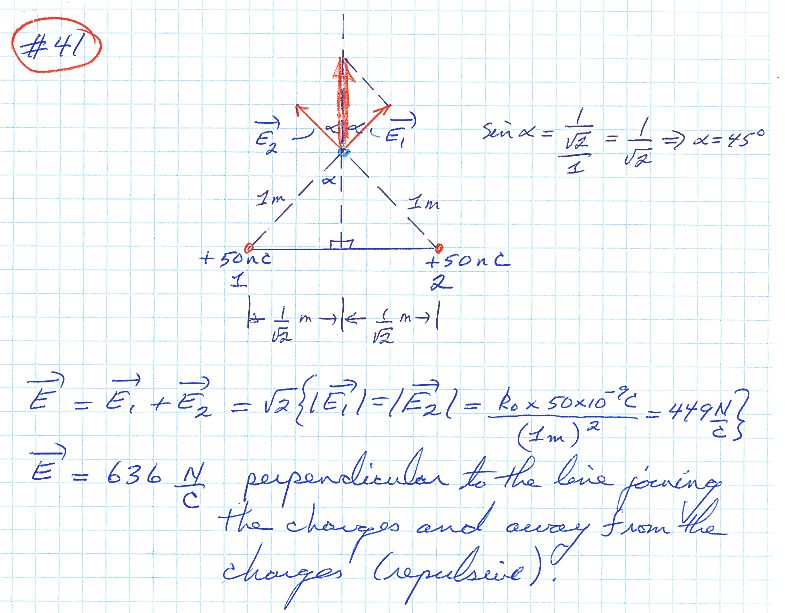 #41
E⃗₂ α α E⃗₁
sin α = (1/√2)/1 = 1/√2 ⇒ α = 45°
α
1m 1m
+50nC +50nC
1 2
1/√2 m 1/√2 m
E⃗ = E⃗₁ + E⃗₂ = √2{|E⃗₁| = |E⃗₂| = (k₀ × 50×10⁻⁹C)/(1m)² = 449 N/C}
E⃗ = 636 N/C perpendicular to the line joining
the charges and away from the
charges (repulsive).